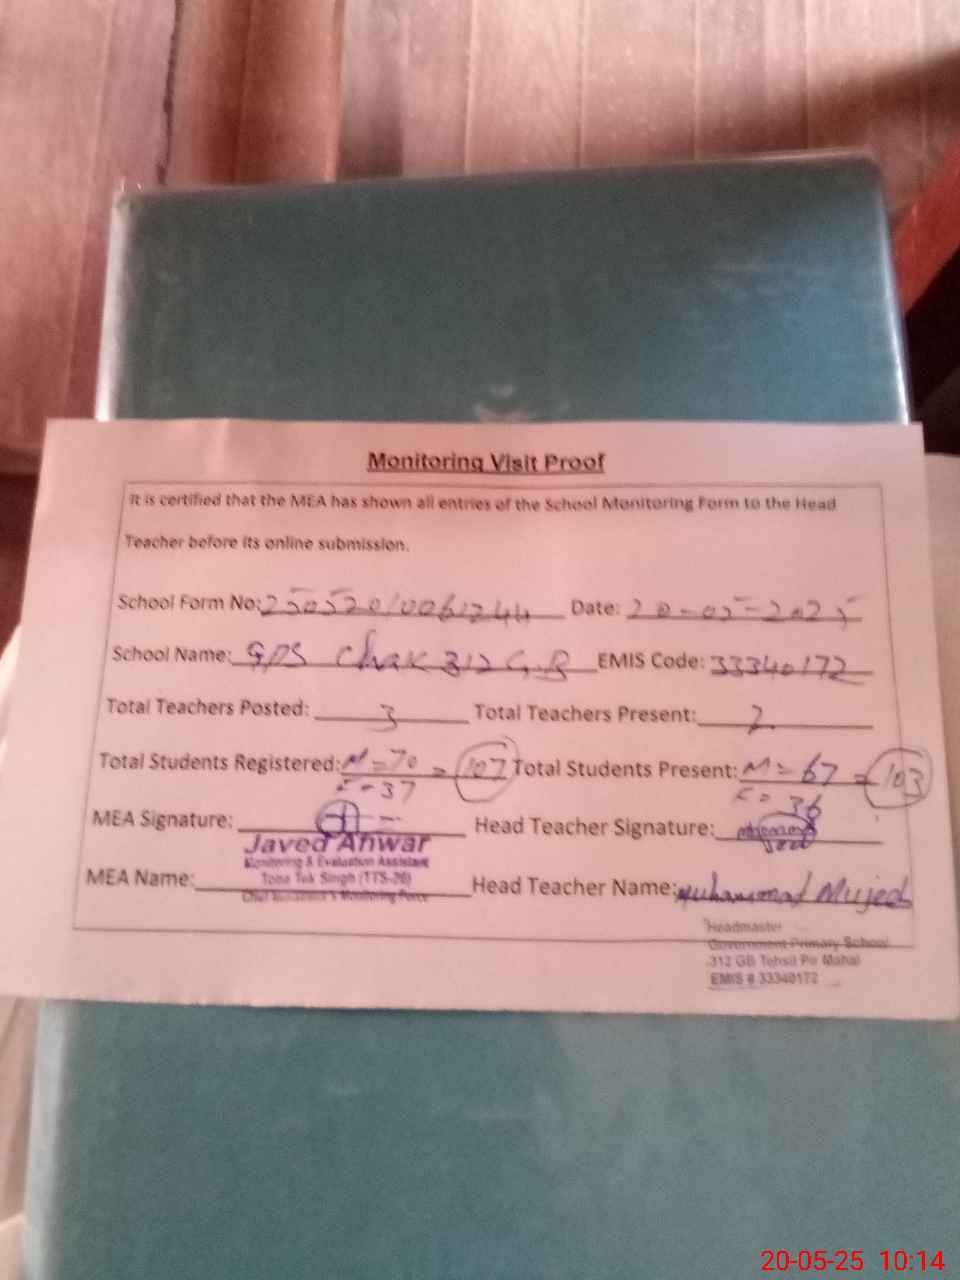 Monitoring Visit Proof
It is certified that the MEA has shown all entries of the School Monitoring Form to the Head
Teacher before its online submission.
School Form No: 25052010061244 Date: 20-05-2025
School Name: GPS Chak 312 G.B EMIS Code: 33340172
Total Teachers Posted: 3 Total Teachers Present: 2
Total Students Registered: M=70 = 107 Total Students Present: M=67 = 103
F=37 F=36
MEA Signature: Head Teacher Signature:
Javed Anwar
Monitoring & Evaluation Assistant
Toba Tek Singh (TTS-26)
Chief Minister's Monitoring Force
MEA Name: Head Teacher Name: Muhammad Mujeeb
Headmaster
Government Primary School
312 GB Tehsil Pir Mahal
EMIS # 33340172
20-05-25 10:14